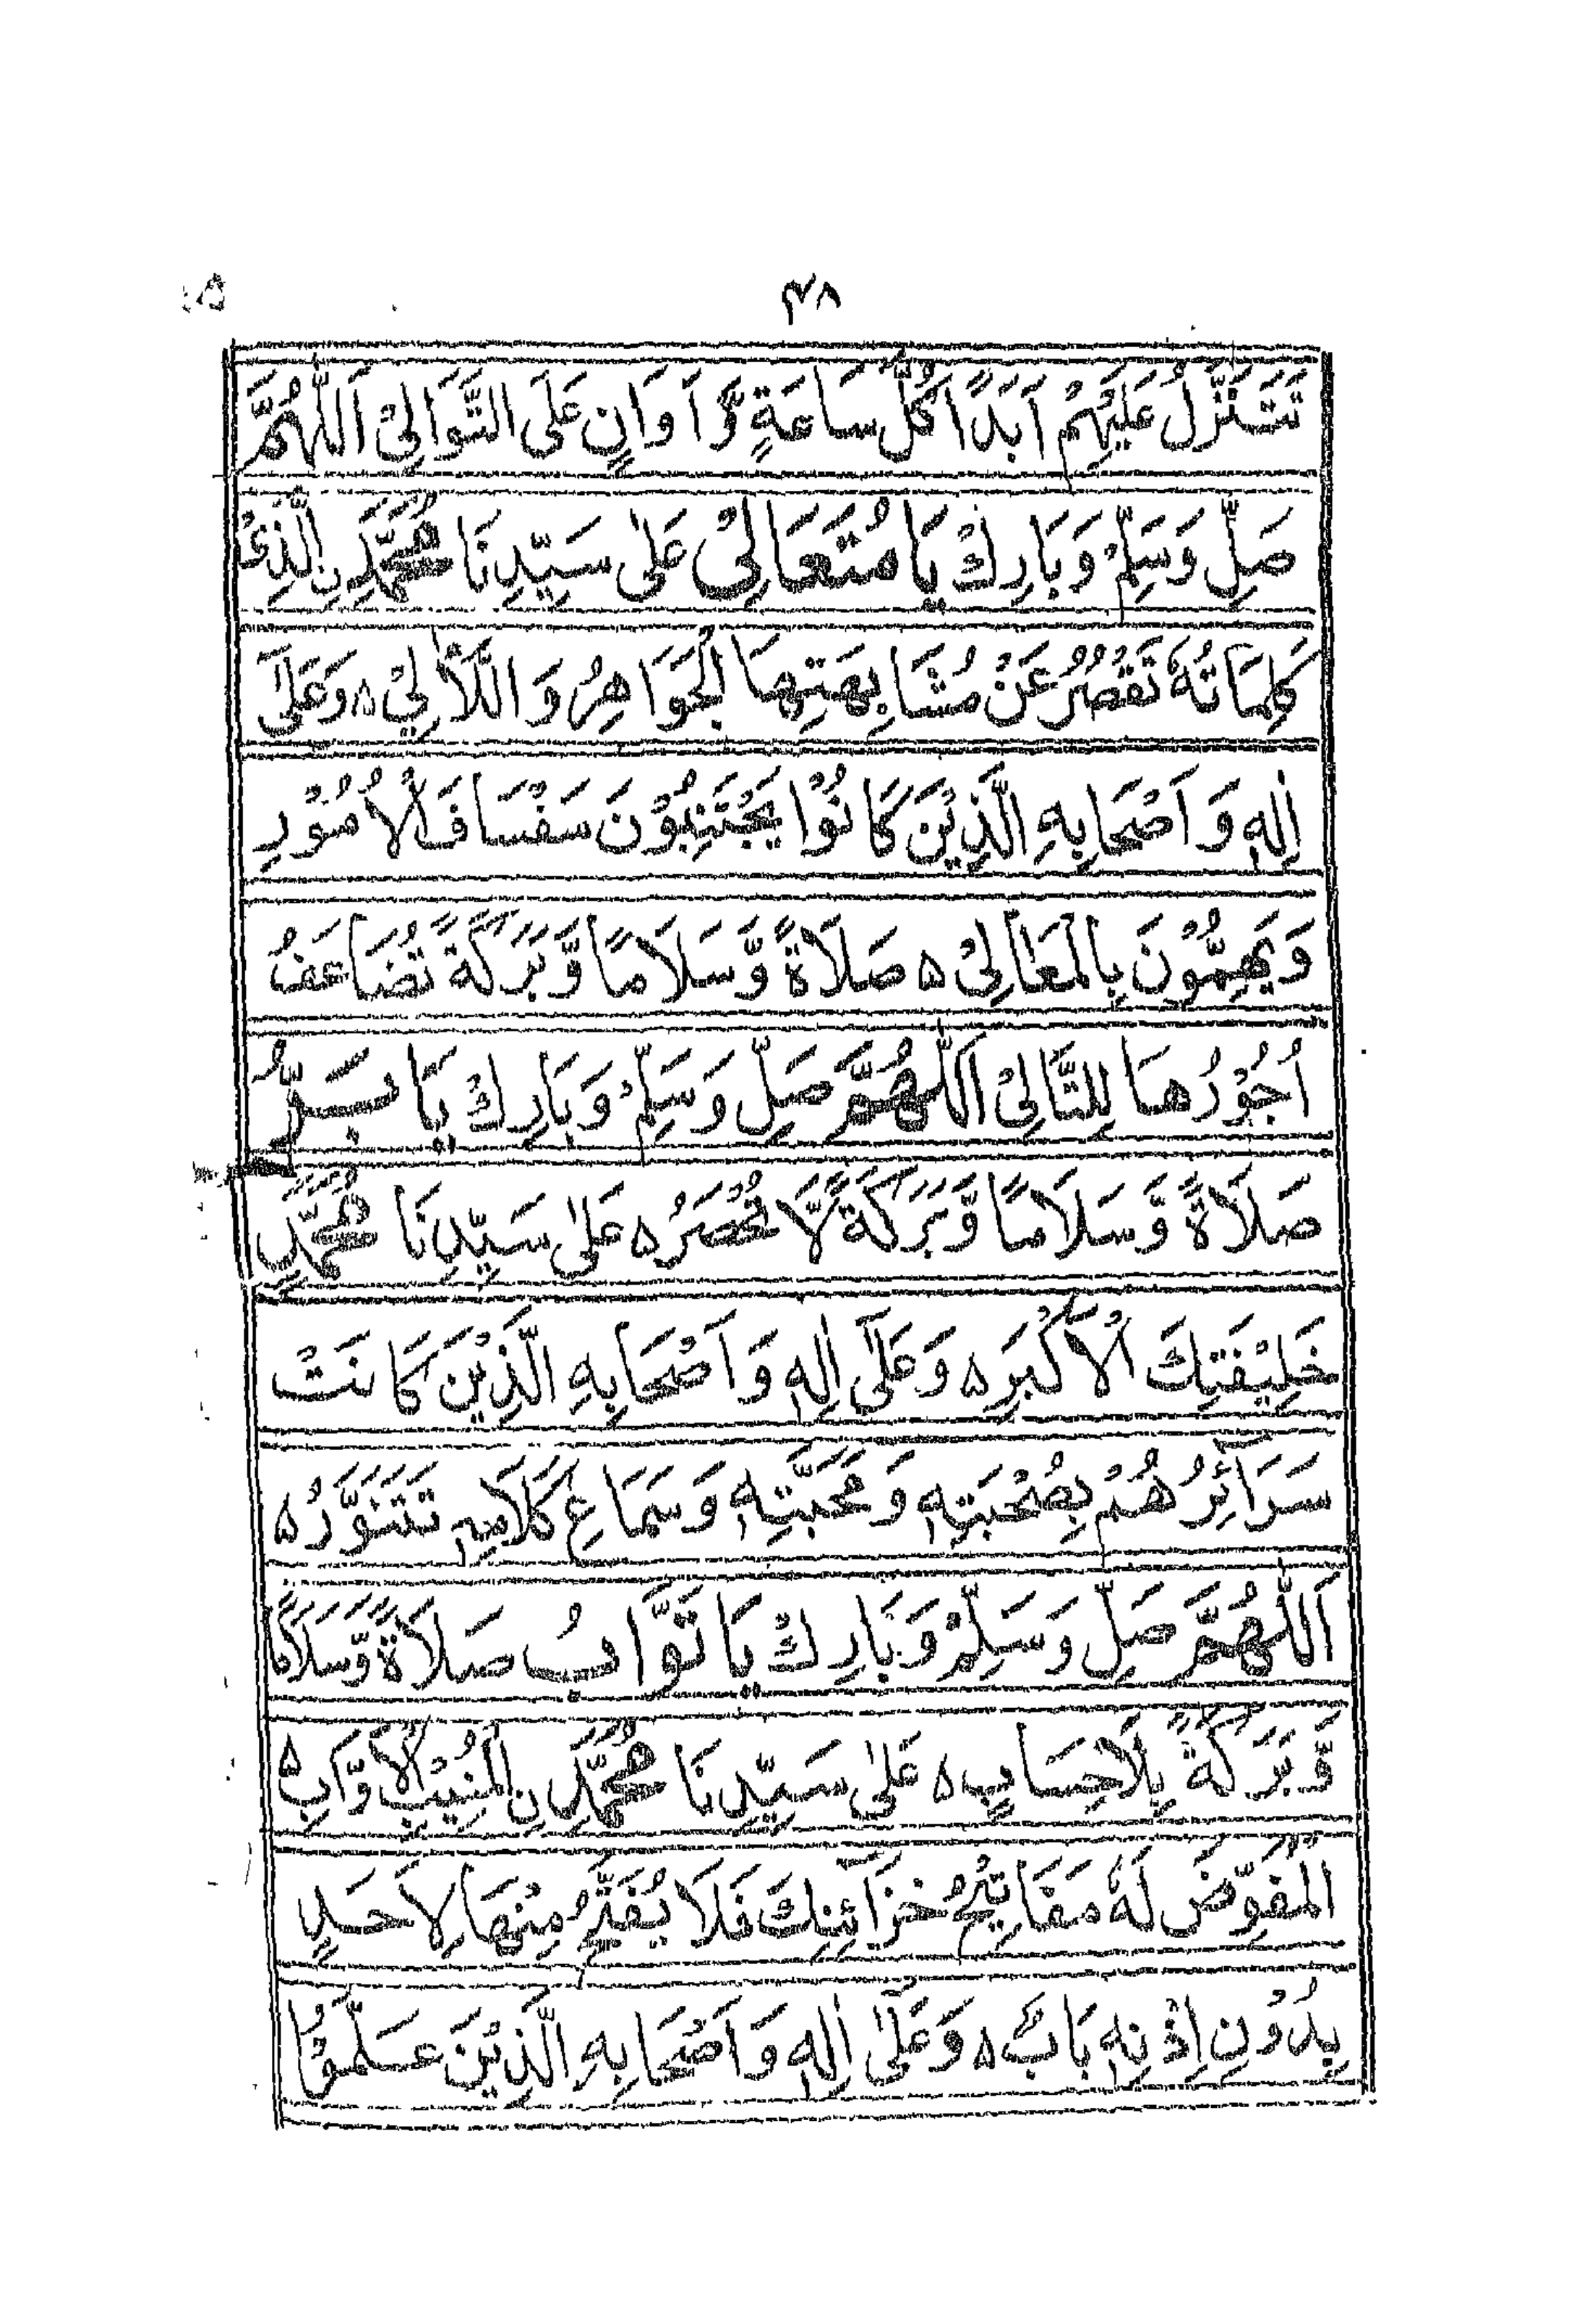 ۴۸
تَتَنَزَّلُ عَلَيْهِمْ اَبَدًا كُلَّ سَاعَةٍ وَّ اَوَانٍ عَلَى التَّوَالِيْ اَللّٰهُمَّ
صَلِّ وَسَلِّمْ وَبَارِكْ يَا مُتَعَالِيْ عَلٰى سَيِّدِنَا مُحَمَّدِنِ الَّذِيْ
كَلِمَاتُهٗ تَقْصُرُ عَنْ مُشَابِهَتِهَا الْجَوَاهِرُ وَ اللَّاٰلِيْ ۵ وَعَلٰٓى
اٰلِهٖ وَ اَصْحَابِهِ الَّذِيْنَ كَانُوْا يَجْتَنِبُوْنَ سَفْسَافَ الْاُمُوْرِ
وَيَهِمُّوْنَ بِالْمَعَالِيْ ۵ صَلَاةً وَّسَلَامًا وَّبَرَكَةً تُضَاعَفُ
اُجُوْرُهَا لِلتَّالِيْ اَللّٰهُمَّ صَلِّ وَسَلِّمْ وَبَارِكْ يَا بَرُّ
صَلَاةً وَّسَلَامًا وَّبَرَكَةً لَّا تُحْصَرُ ۵ عَلٰى سَيِّدِنَا مُحَمَّدٍ
خَلِيْفَتِكَ الْاَكْبَرِ ۵ وَعَلٰٓى اٰلِهٖ وَ اَصْحَابِهِ الَّذِيْنَ كَانَتْ
سَرَآئِرُهُمْ بِصُحْبَتِهٖ وَمَحَبَّتِهٖ وَسَمَاعِ كَلَامِهٖ تَتَنَوَّرُ ۵
اَللّٰهُمَّ صَلِّ وَسَلِّمْ وَبَارِكْ يَا تَوَّابُ صَلَاةً وَّسَلَامًا
وَّبَرَكَةً بِلَاحِسَابٍ ۵ عَلٰى سَيِّدِنَا مُحَمَّدِنِ الْمُنِيْبِ الْاَوَّابِ ۵
الْمُفَوَّضِ لَهٗ مَفَاتِيْحُ خَزَآئِنِكَ فَلَا يُفْتَحُ مِنْهَا لِاَحَدٍ
بِدُوْنِ اِذْنِهٖ بَابٌ ۵ وَعَلٰٓى اٰلِهٖ وَ اَصْحَابِهِ الَّذِيْنَ عَلَّمُوْا